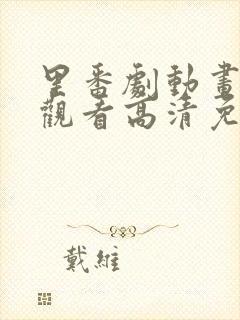 里番劇動畫
觀看高清免
戴維